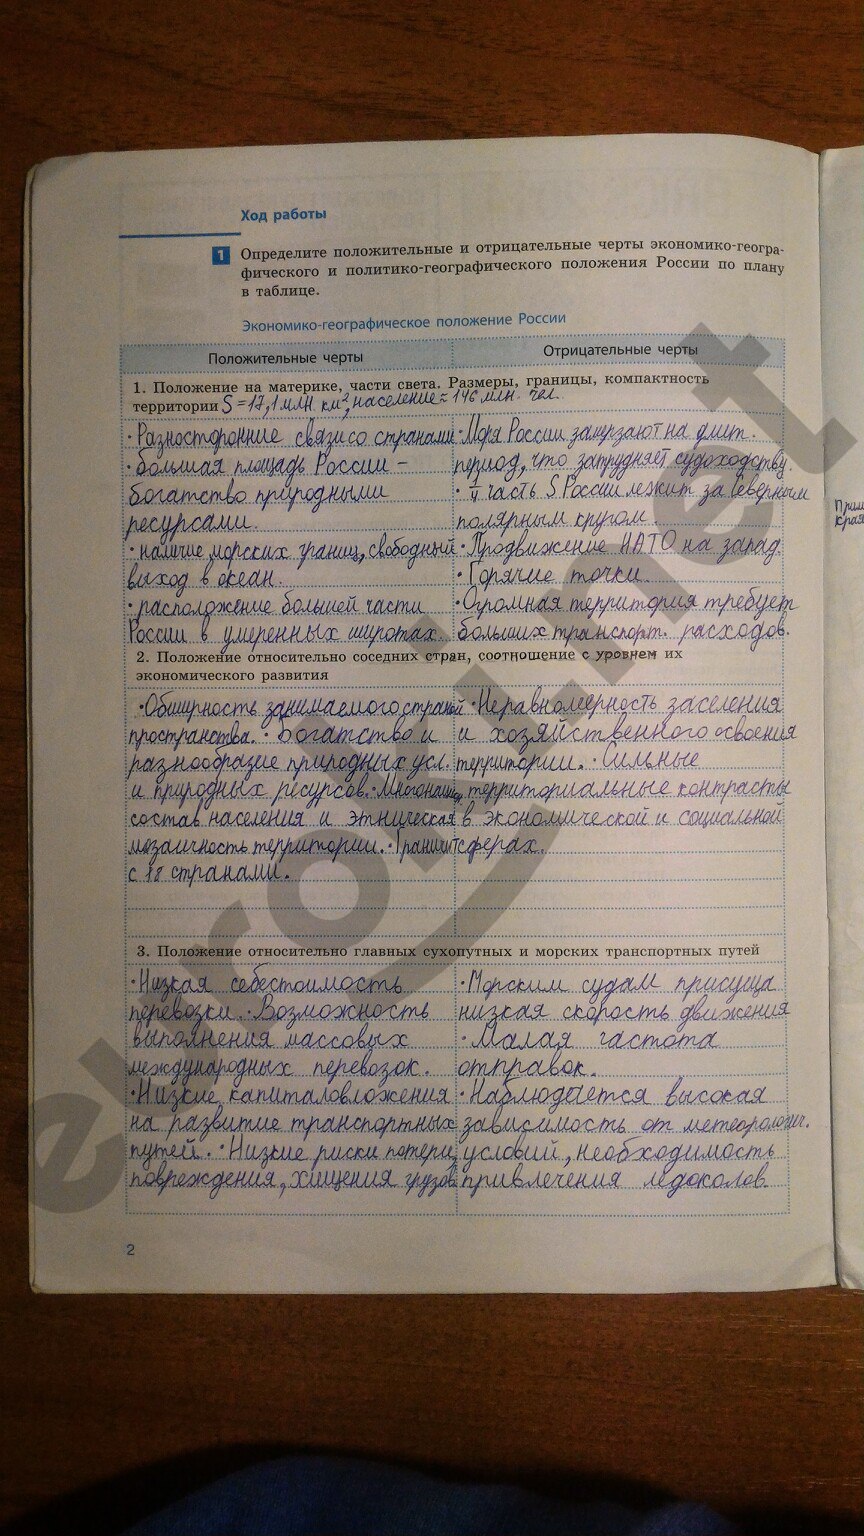 Ход работы
1 Определите положительные и отрицательные черты экономико-геогра-
фического и политико-географического положения России по плану
в таблице.
Экономико-географическое положение России
Положительные черты
Отрицательные черты
1. Положение на материке, части света. Размеры, границы, компактность
территории S = 17,1 млн км², население ≈ 146 млн. чел.
• Разносторонние связи со странами
• большая площадь России –
богатство природными
ресурсами.
• наличие морских границ, свободный
выход в океан.
• расположение большей части
России в умеренных широтах.
• Моря России замерзают на длит.
период, что затрудняет судоходству.
часть S России лежит за Северным
полярным кругом.
• Продвижение НАТО на запад.
• Горячие точки.
• Огромная территория требует
больших транспорт. расходов.
2. Положение относительно соседних стран, соотношение с уровнем их
экономического развития
• Обширность занимаемого страной
пространства. • Богатство и
разнообразие природных усл.
и природных ресурсов.
состав населения и этническая
мозаичность территории. • Граничит
с 18 странами.
• Неравномерность заселения
и хозяйственного освоения
территории. • Сильные
территориальные контрасты
в экономической и социальной
сферах.
3. Положение относительно главных сухопутных и морских транспортных путей
• Низкая себестоимость
перевозки. • Возможность
выполнения массовых
международных перевозок.
• Низкие капиталовложения
на развитие транспортных
путей. • Низкие риски потери,
повреждения, хищения грузов.
• Морским судам присуща
низкая скорость движения
• Малая частота
отправок.
• Наблюдается высокая
зависимость от метеорологич.
условий, необходимость
привлечения ледоколов.
2
euroki.net